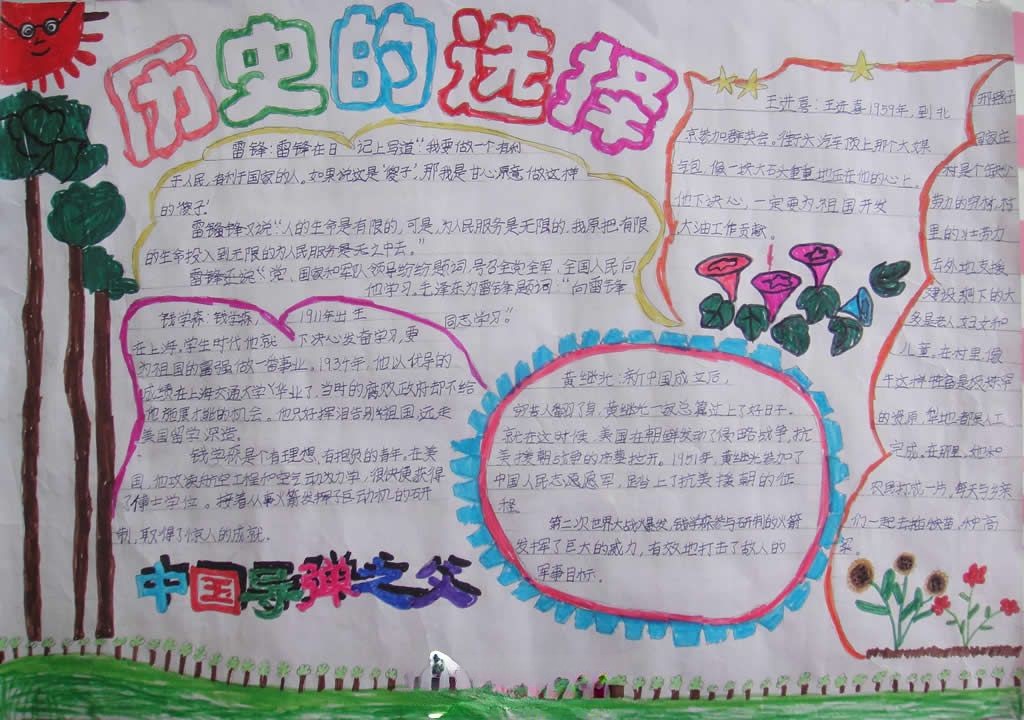 历史的选择
雷锋:雷锋在日 记上写道“我要做一个有利
于人民,有利于国家的人。如果说这是‘傻子’,那我是甘心愿意做这种
的‘傻子’
雷锋锋又说“人的生命是有限的,可是,为人民服务是无限的.我原把有限
的生命投入到无限的为人民服务是无之中去。”
雷锋还说“党、国家和军队领导纷纷题词,号召全党全军、全国人民向
他学习。毛泽东为雷锋题词“向雷锋
同志学习”。
钱学森:钱学森, 1911年出生
在上海.学生时代他就 下决心发奋学习,要
为祖国的富强,做一番事业。1934年,他以优异的
成绩在上海交通大学业毕业了,当时的腐败政府却不给
他施展才能的机会。他只好挥泪告别祖国,远走
美国留学深造。
钱学森是个有理想、有抱负的青年,在美
国,他攻读航空工程和空气动力学,很快便获得
了博士学位。接着从事火箭发
制,取得了惊人的成就.
中国导弹之父
黄继光:新中国成立后,
穷苦人翻了身,黄继光一家总算过上了好日子。
就在这时候,美国在朝鲜发动了侵略战争,抗
美援朝战争的序幕拉开。1951年,黄继光参加了
中国人民志愿军,踏上了抗美援朝的征
程.
第二次世界大战爆发,钱学森参与研制的火箭
发挥了巨大的威力,有效地打击了敌人的
军事目标.
王进喜:王进喜1959年,到北
京参加群英会。街行大汽车顶上那个大煤
气包,像一块大石头重重地压在他的心上.
他下决心,一定要为祖国开发
大油工作贡献。
邢燕子
家庄
村是个缺少
劳力的穷村.村
里的壮劳力
去外地支援
建设,剩下的大
多是老人妇女和
儿童。在村里,像
牛这种
的资源,
完成。在那里,她和
农民打成一片,每天与乡亲
们一起去插秧苗、种高
粱。